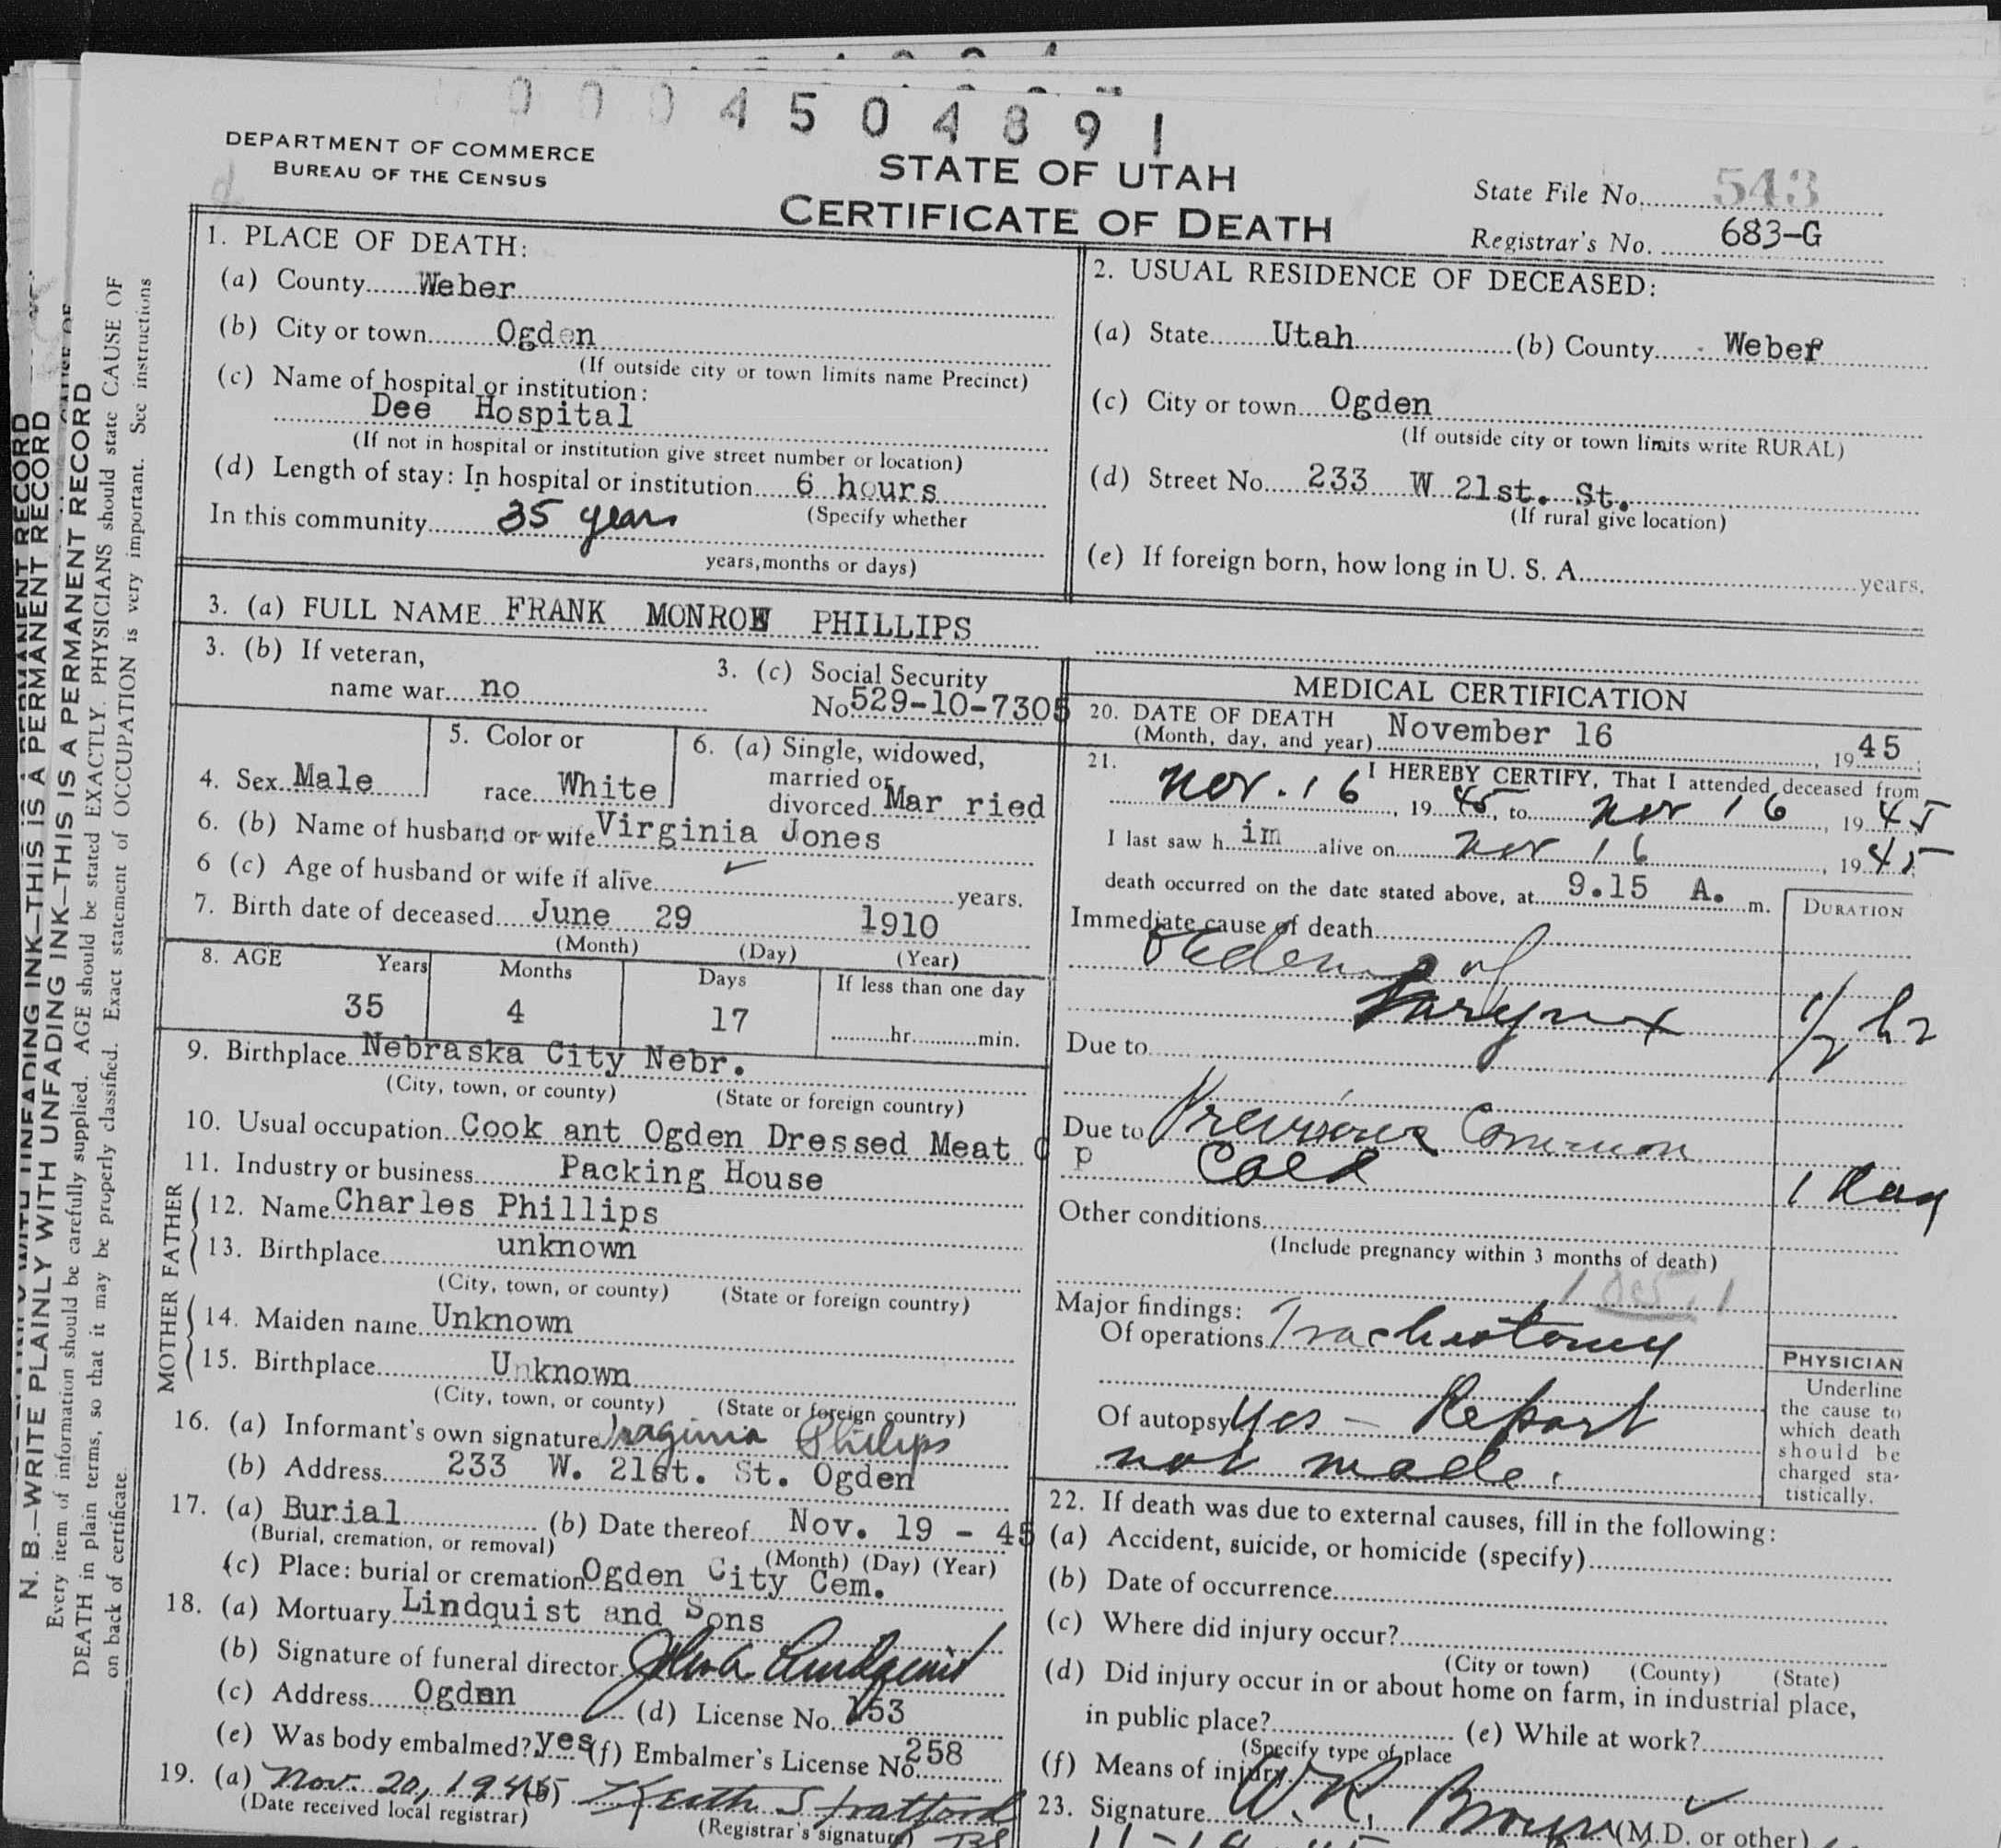 0004504891
DEPARTMENT OF COMMERCE
BUREAU OF THE CENSUS
STATE OF UTAH
CERTIFICATE OF DEATH
State File No. 543
Registrar's No. 683-G
1. PLACE OF DEATH:
(a) County Weber
(b) City or town Ogden
(If outside city or town limits name Precinct)
(c) Name of hospital or institution:
Dee Hospital
(If not in hospital or institution give street number or location)
(d) Length of stay: In hospital or institution 6 hours
In this community 35 years (Specify whether
years, months or days)
2. USUAL RESIDENCE OF DECEASED:
(a) State Utah (b) County Weber
(c) City or town Ogden
(If outside city or town limits write RURAL)
(d) Street No. 233 W 21st. St.
(If rural give location)
(e) If foreign born, how long in U. S. A. years.
3. (a) FULL NAME FRANK MONROE PHILLIPS
3. (b) If veteran,
name war no
3. (c) Social Security
No. 529-10-7305
4. Sex Male
5. Color or
race White
6. (a) Single, widowed,
married or
divorced Mar ried
6. (b) Name of husband or wife Virginia Jones
6 (c) Age of husband or wife if alive years.
7. Birth date of deceased June 29 1910
(Month) (Day) (Year)
8. AGE Years Months Days If less than one day
35 4 17 hr. min.
9. Birthplace Nebraska City Nebr.
(City, town, or county) (State or foreign country)
10. Usual occupation Cook ant Ogden Dressed Meat C
p
11. Industry or business Packing House
FATHER
12. Name Charles Phillips
13. Birthplace unknown
(City, town, or county) (State or foreign country)
MOTHER
14. Maiden name Unknown
15. Birthplace Unknown
(City, town, or county) (State or foreign country)
16. (a) Informant's own signature Virginia Phillips
(b) Address 233 W. 21st. St. Ogden
17. (a) Burial (b) Date thereof Nov. 19 - 45
(Burial, cremation, or removal) (Month) (Day) (Year)
(c) Place: burial or cremation Ogden City Cem.
18. (a) Mortuary Lindquist and Sons
(b) Signature of funeral director John A Lindquist
(c) Address Ogden (d) License No. 153
(e) Was body embalmed? yes (f) Embalmer's License No. 258
19. (a) Nov. 20, 1945 (b) Keith Stratford
(Date received local registrar) (Registrar's signature)
MEDICAL CERTIFICATION
20. DATE OF DEATH
(Month, day, and year) November 16, 1945
21. I HEREBY CERTIFY, That I attended deceased from
Nov. 16, 1945, to Nov 16, 1945
I last saw h im alive on Nov 16, 1945
death occurred on the date stated above, at 9.15 A. m.
DURATION
Immediate cause of death
Oedema of
Larynx 1/2 hr
Due to
Due to Previous Common
Cold 1 day
Other conditions
(Include pregnancy within 3 months of death)
Major findings:
Of operations Tracheotomy
Of autopsy Yes - Report
not made.
PHYSICIAN
Underline
the cause to
which death
should be
charged sta-
tistically.
22. If death was due to external causes, fill in the following:
(a) Accident, suicide, or homicide (specify)
(b) Date of occurrence
(c) Where did injury occur?
(City or town) (County) (State)
(d) Did injury occur in or about home on farm, in industrial place,
in public place? (e) While at work?
(Specify type of place
(f) Means of injury
23. Signature W. R. Brown (M.D. or other)
N. B.—WRITE PLAINLY WITH UNFADING INK—THIS IS A PERMANENT RECORD
Every item of information should be carefully supplied. AGE should be stated EXACTLY. PHYSICIANS should state CAUSE OF
DEATH in plain terms, so that it may be properly classified. Exact statement of OCCUPATION is very important. See instructions
on back of certificate.